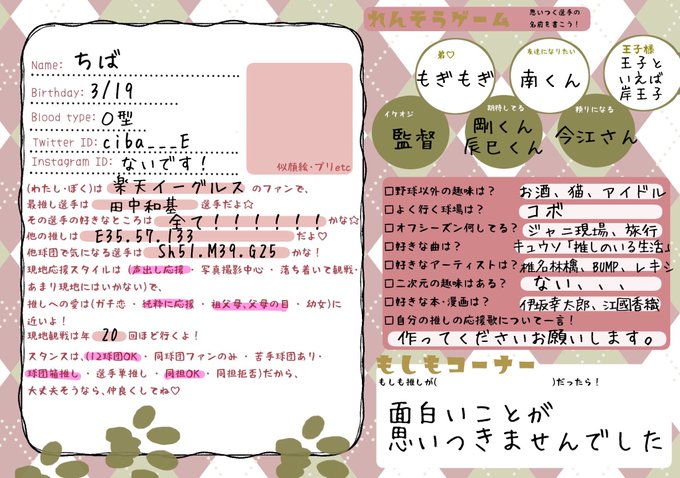 Name: ちば
Birthday: 3/19
Blood type: O型
Twitter ID: ciba___E
Instagram ID: ないです!
似顔絵・プリetc
(わたし・ぼく)は 楽天イーグルス のファンで、
最推し選手は 田中和基 選手だよ☆
その選手の好きなところは 全て!!!!!! かな☆
他の推しは E35.57.133 だよ♡
他球団で気になる選手は Sh51.M39.G25 かな!
現地応援スタイルは(声出し応援・写真撮影中心・落ち着いて観戦・
あまり現地にはいかない)で、
推しへの愛は(ガチ恋・純粋に応援・祖父母、父母の目・幼女)に
近いよ!
現地観戦は年 20 回ほど行くよ!
スタンスは、(12球団OK・同球団ファンのみ・苦手球団あり・
球団箱推し・選手単推し・同担OK・同担拒否)だから、
大丈夫そうなら、仲良くしてね♡
れんそうゲーム
思いつく選手の
名前を書こう!
弟♡
もぎもぎ
友達になりたい
南くん
王子様
王子と
いえば
岸王子
イケオジ
監督
期待してる
剛くん
辰巳くん
頼りになる
今江さん
□野球以外の趣味は? お酒、猫、アイドル
□よく行く球場は? コボ
□オフシーズン何してる? ジャニ現場、旅行
□好きな曲は? キュウソ「推しのいる生活」
□好きなアーティストは? 椎名林檎、BUMP、レキシ
□二次元の趣味はある? ない、、、
□好きな本・漫画は? 伊坂幸太郎、江國香織
□自分の推しの応援歌について一言!
作ってくださいお願いします。
もしもコーナー
もしも推しが( )だったら!
面白いことが
思いつきませんでした